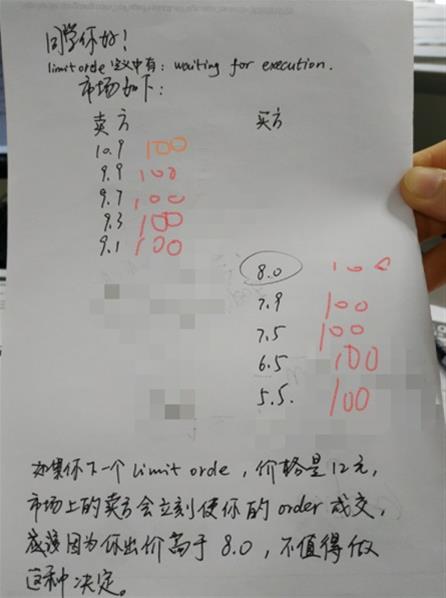 同学你好!
limit orde 定义中有: waiting for execution.
市场如下:
卖方 买方
10.9 100
9.9 100
9.7 100
9.3 100
9.1 100
8.0 100
7.9 100
7.5 100
6.5 100
5.5. 100
如果你下一个 limit orde, 价格是12元,
市场上的卖方会立刻使你的 order 成交,
应该因为你出价高于 8.0, 不值得做
这种决定。